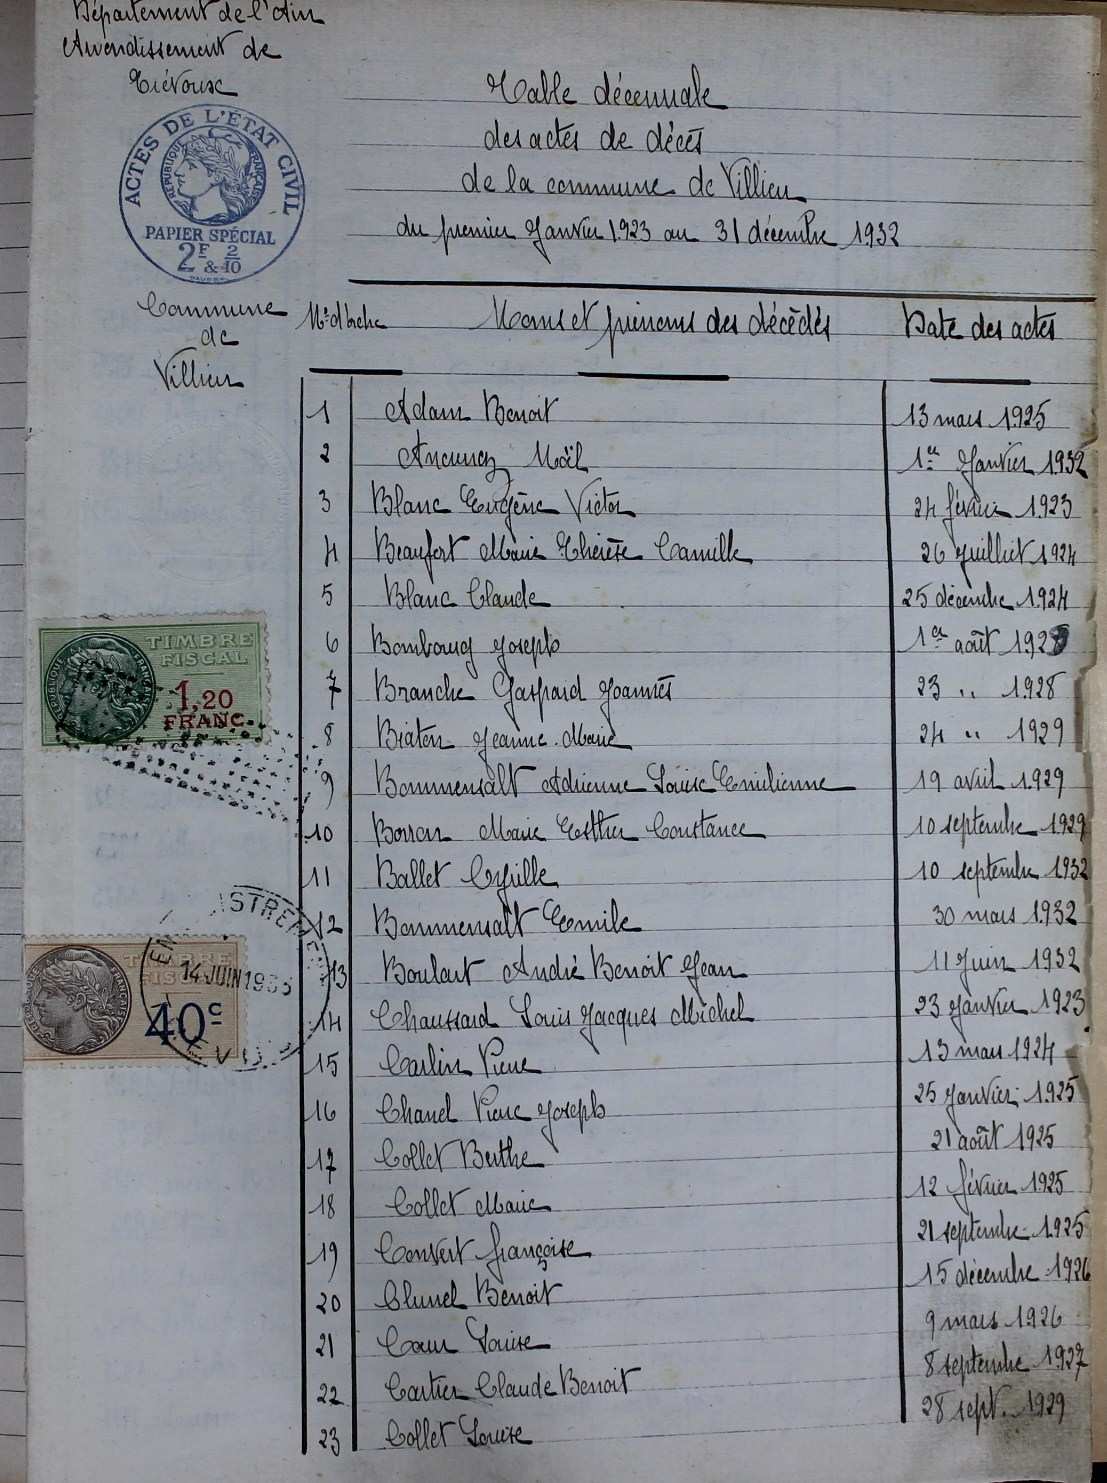 Département de l'Ain
Arrondissement de
Trévoux
ACTES DE L'ÉTAT CIVIL
RÉPUBLIQUE FRANÇAISE
PAPIER SPÉCIAL
2F & 2/10
Table décennale
des actes de décès
de la commune de Villieu
du premier Janvier 1923 au 31 décembre 1932
Commune
de
Villieu
Nos d'ordre Noms et prénoms des décédés Date des actes
1 Adam Benoit 13 mars 1925
2 Noël 1er Janvier 1932
3 Blanc Eugène Victor 24 février 1923
4 Beaufort Marie Thérèse Camille 26 Juillet 1924
5 Blanc Claude 25 décembre 1924
6 Bombourg Joseph 1er août
7 Branche Gaspard Joannès 23 " 1928
8 Biaton Jeanne-Marie 24 " 1929
9 Bommensalt Adrienne Louise Emilienne 19 avril 1929
10 Borron Marie Esther Constance 10 septembre 1929
11 Ballet Cyrille 10 septembre 1932
12 Bommensalt Emile 30 mars 1932
13 Boulart André Benoit Jean 11 Juin 1932
14 Chaussard Louis Jacques Michel 23 Janvier 1923
15 Carlin Pierre 13 mars 1924
16 Chanel Pierre Joseph 25 Janvier 1925
17 Collet Berthe 21 août 1925
18 Collet Marie 12 février 1925
19 Convert Françoise 21 septembre 1925
20 Clunel Benoit 15 décembre 1926
21 Louise 9 mars 1926
22 Cartier Claude Benoit 8 septembre 1927
23 Collet Louise 28 sept. 1929
TIMBRE
FISCAL
RÉPUBLIQUE FRANÇAISE
1,20
FRANC
TIMBRE
FISCAL
FRANÇAISE
40c
14 JUIN 1933